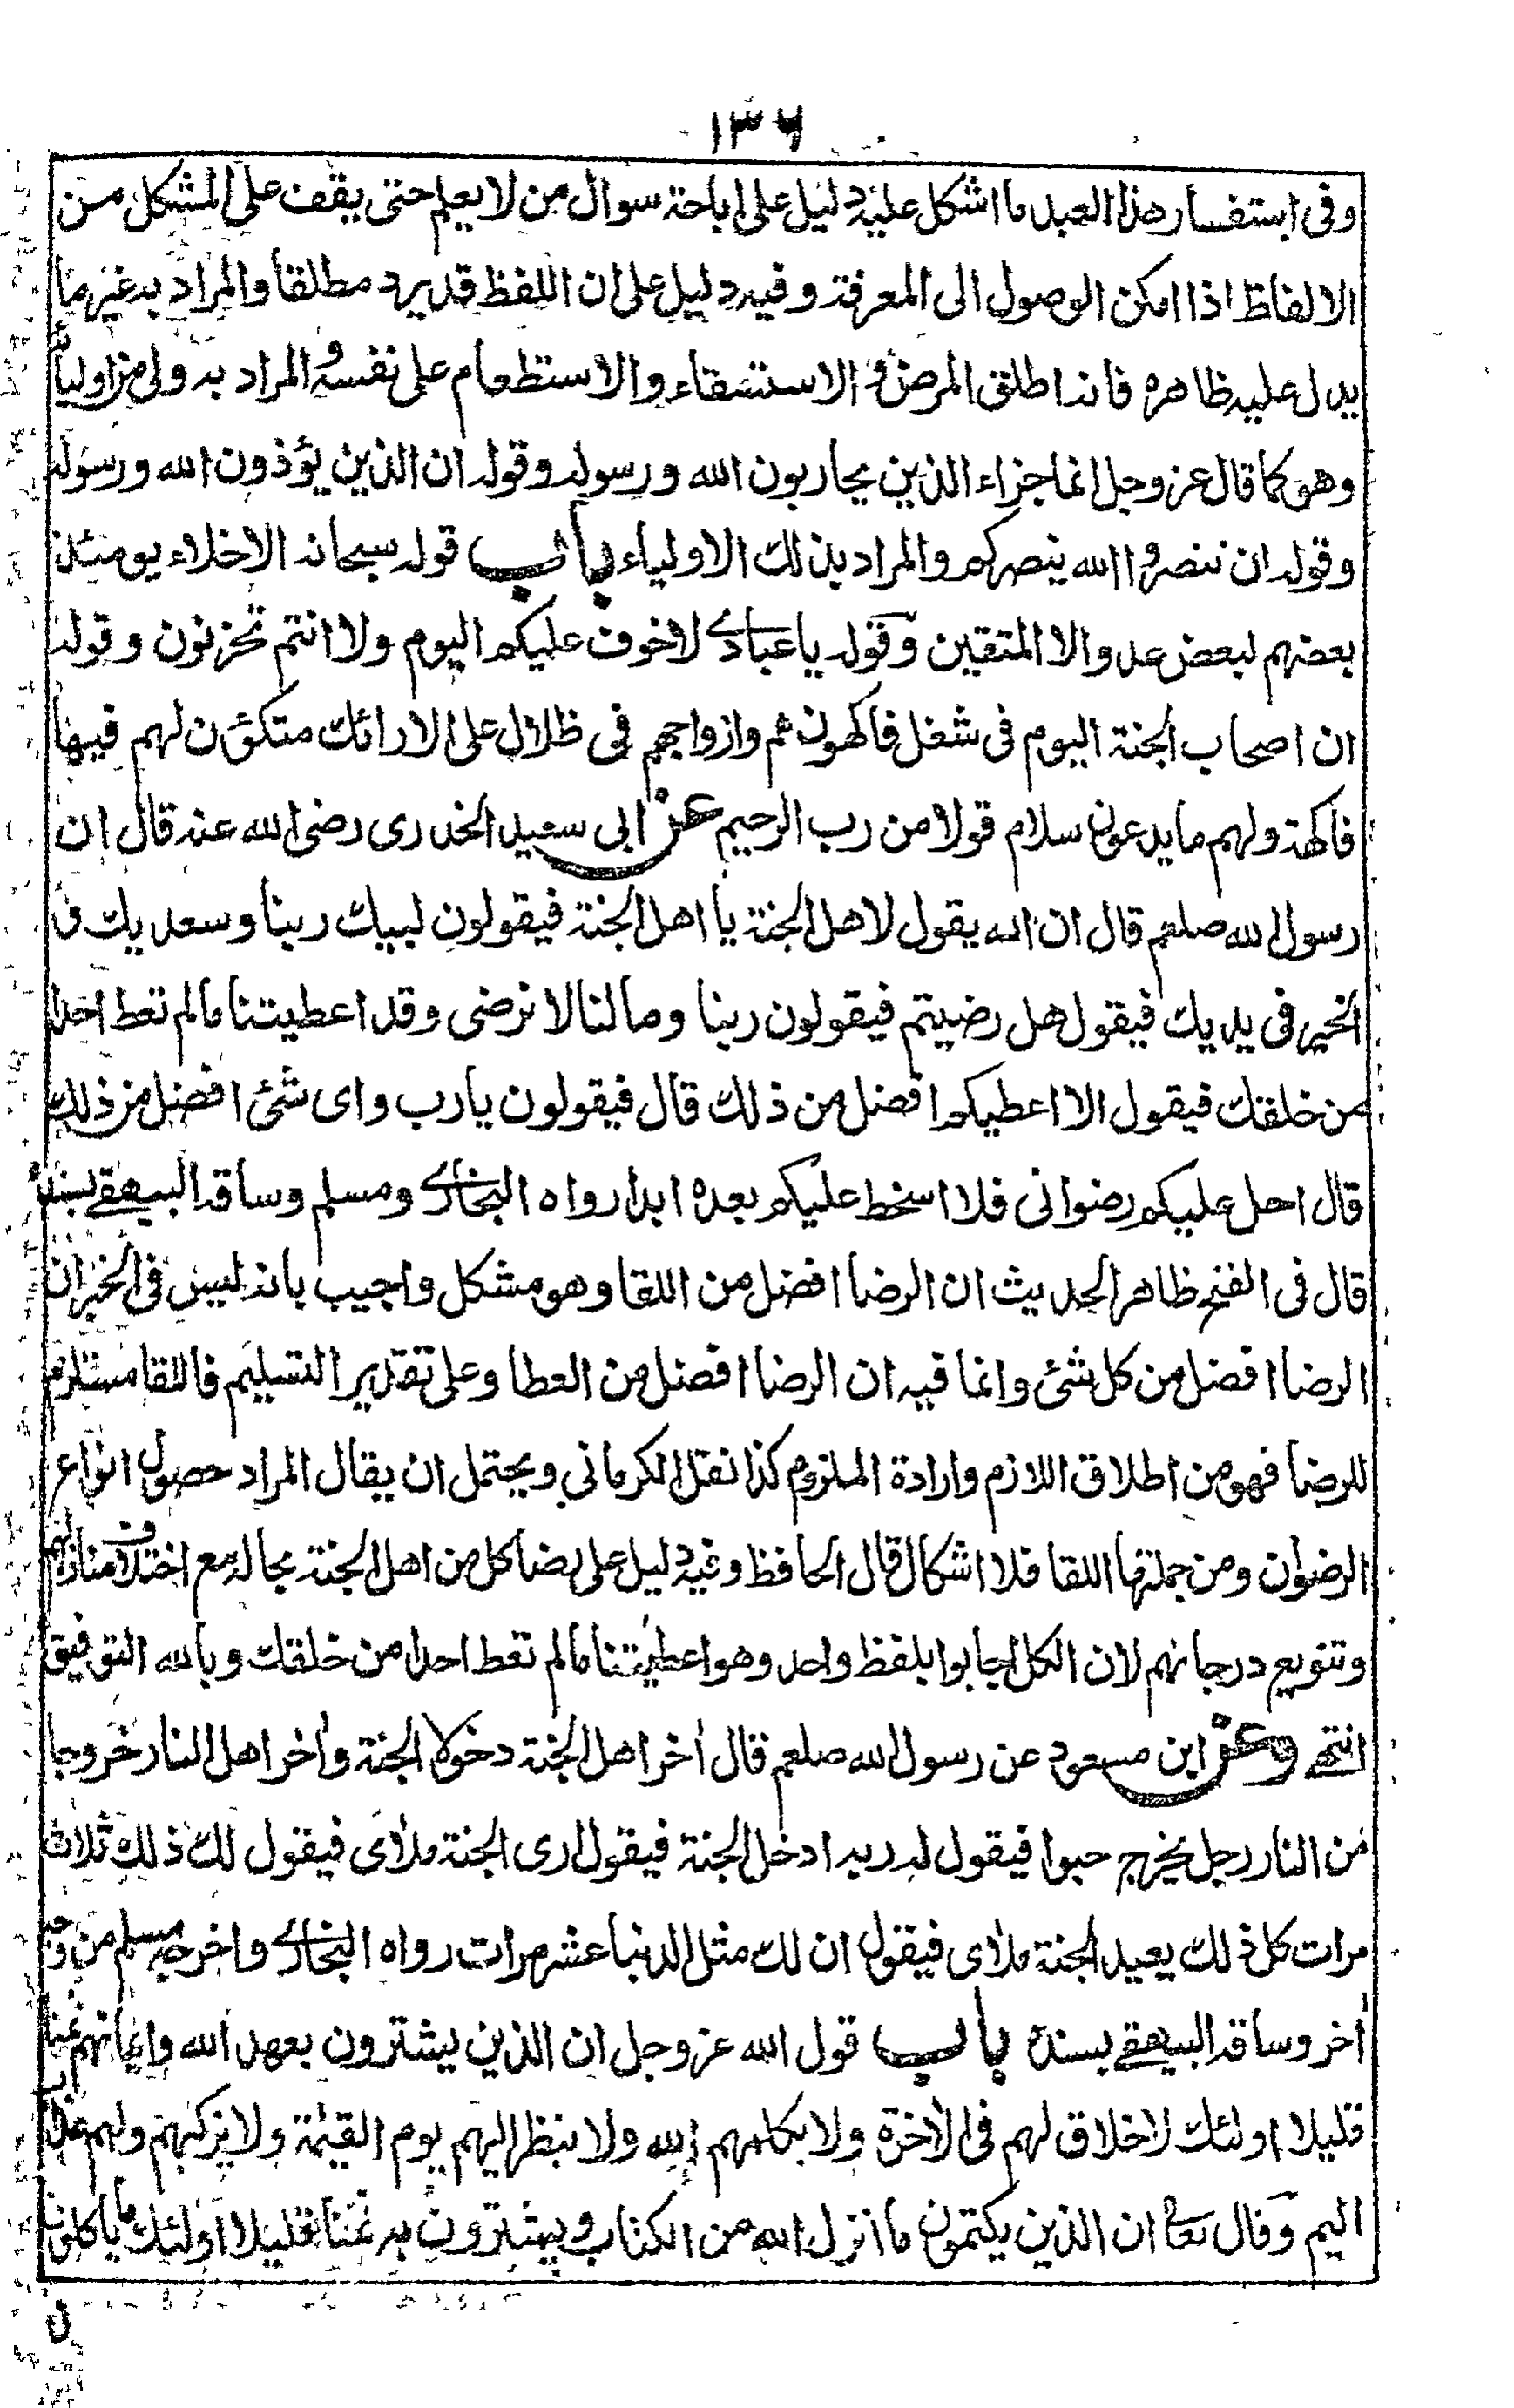 ١٣٦
وفى استفسار هذا العبد ما اشكل عليه دليل على اباحة سوال من لا يعلم حتى يقف على المشكل من
الالفاظ اذا امكن الوصول الى المعرفة وفيه دليل على ان اللفظ قد يرد مطلقا والمراد به غير ما
يدل عليه ظاهره فانه اطلق المرض و الاستسقاء والاستطعام على نفسه والمراد به ولى من اوليائه
وهو كما قال عز وجل انما جزاء الذين يحاربون الله ورسوله وقوله ان الذين يؤذون الله ورسوله
وقوله ان تنصروا الله ينصركم والمراد بذلك الاولياء باب قوله سبحانه الاخلاء يومئذ
بعضهم لبعض عدو الا المتقين وقوله يا عبادي لا خوف عليكم اليوم ولا انتم تحزنون وقوله
ان اصحاب الجنة اليوم فى شغل فاكهون هم وازواجهم فى ظلال على الارائك متكؤن لهم فيها
فاكهة ولهم ما يدعون سلام قولا من رب الرحيم عن ابى سعيد الخدرى رضى الله عنه قال ان
رسول الله صلعم قال ان الله يقول لاهل الجنة يا اهل الجنة فيقولون لبيك ربنا وسعديك و
الخير فى يديك فيقول هل رضيتم فيقولون ربنا وما لنا لا نرضى وقد اعطيتنا ما لم تعط احدا
من خلقك فيقول الا اعطيكم افضل من ذلك قال فيقولون يا رب واى شئ افضل من ذلك
قال احل عليكم رضوانى فلا اسخط عليكم بعده ابدا رواه البخاري ومسلم وساقه البيهقے بسنده
قال فى الفتح ظاهر الحديث ان الرضا افضل من اللقا وهو مشكل واجيب بانه ليس فى الخبر ان
الرضا افضل من كل شئ وانما فيه ان الرضا افضل من العطا وعلى تقدير التسليم فاللقا مستلزم
للرضا فهو من اطلاق اللازم وارادة الملزوم كذا نقل الكرمانى ويحتمل ان يقال المراد حصول انواع
الرضوان ومن جملتها اللقا فلا اشكال قال الحافظ وفيه دليل على رضا كل من اهل الجنة بحاله مع اختلاف منازلهم
وتنويع درجاتهم لان الكل اجابوا بلفظ واحد وهو اعطيتنا ما لم تعط احدا من خلقك وبالله التوفيق
انتهے وعن ابن مسعود عن رسول الله صلعم قال أخر اهل الجنة دخولا الجنة وأخر اهل النار خروجا
من النار رجل يخرج حبوا فيقول له ربه ادخل الجنة فيقول ارى الجنة ملأى فيقول لك ذلك ثلاث
مرات كل ذلك يعيد الجنة ملأى فيقول ان لك مثل الدنيا عشر مرات رواه البخاري واخرجه مسلم من وجه
أخر وساقه البيهقے بسنده باب قول الله عز وجل ان الذين يشترون بعهد الله وايمانهم ثمنا
قليلا اولئك لا خلاق لهم فى الأخرة ولا يكلمهم الله ولا ينظر اليهم يوم القيمة ولا يزكيهم ولهم عذاب
اليم وقال تعا ان الذين يكتمون ما انزل الله من الكتاب ويشترون به ثمنا قليلا اولئك ما ياكلون